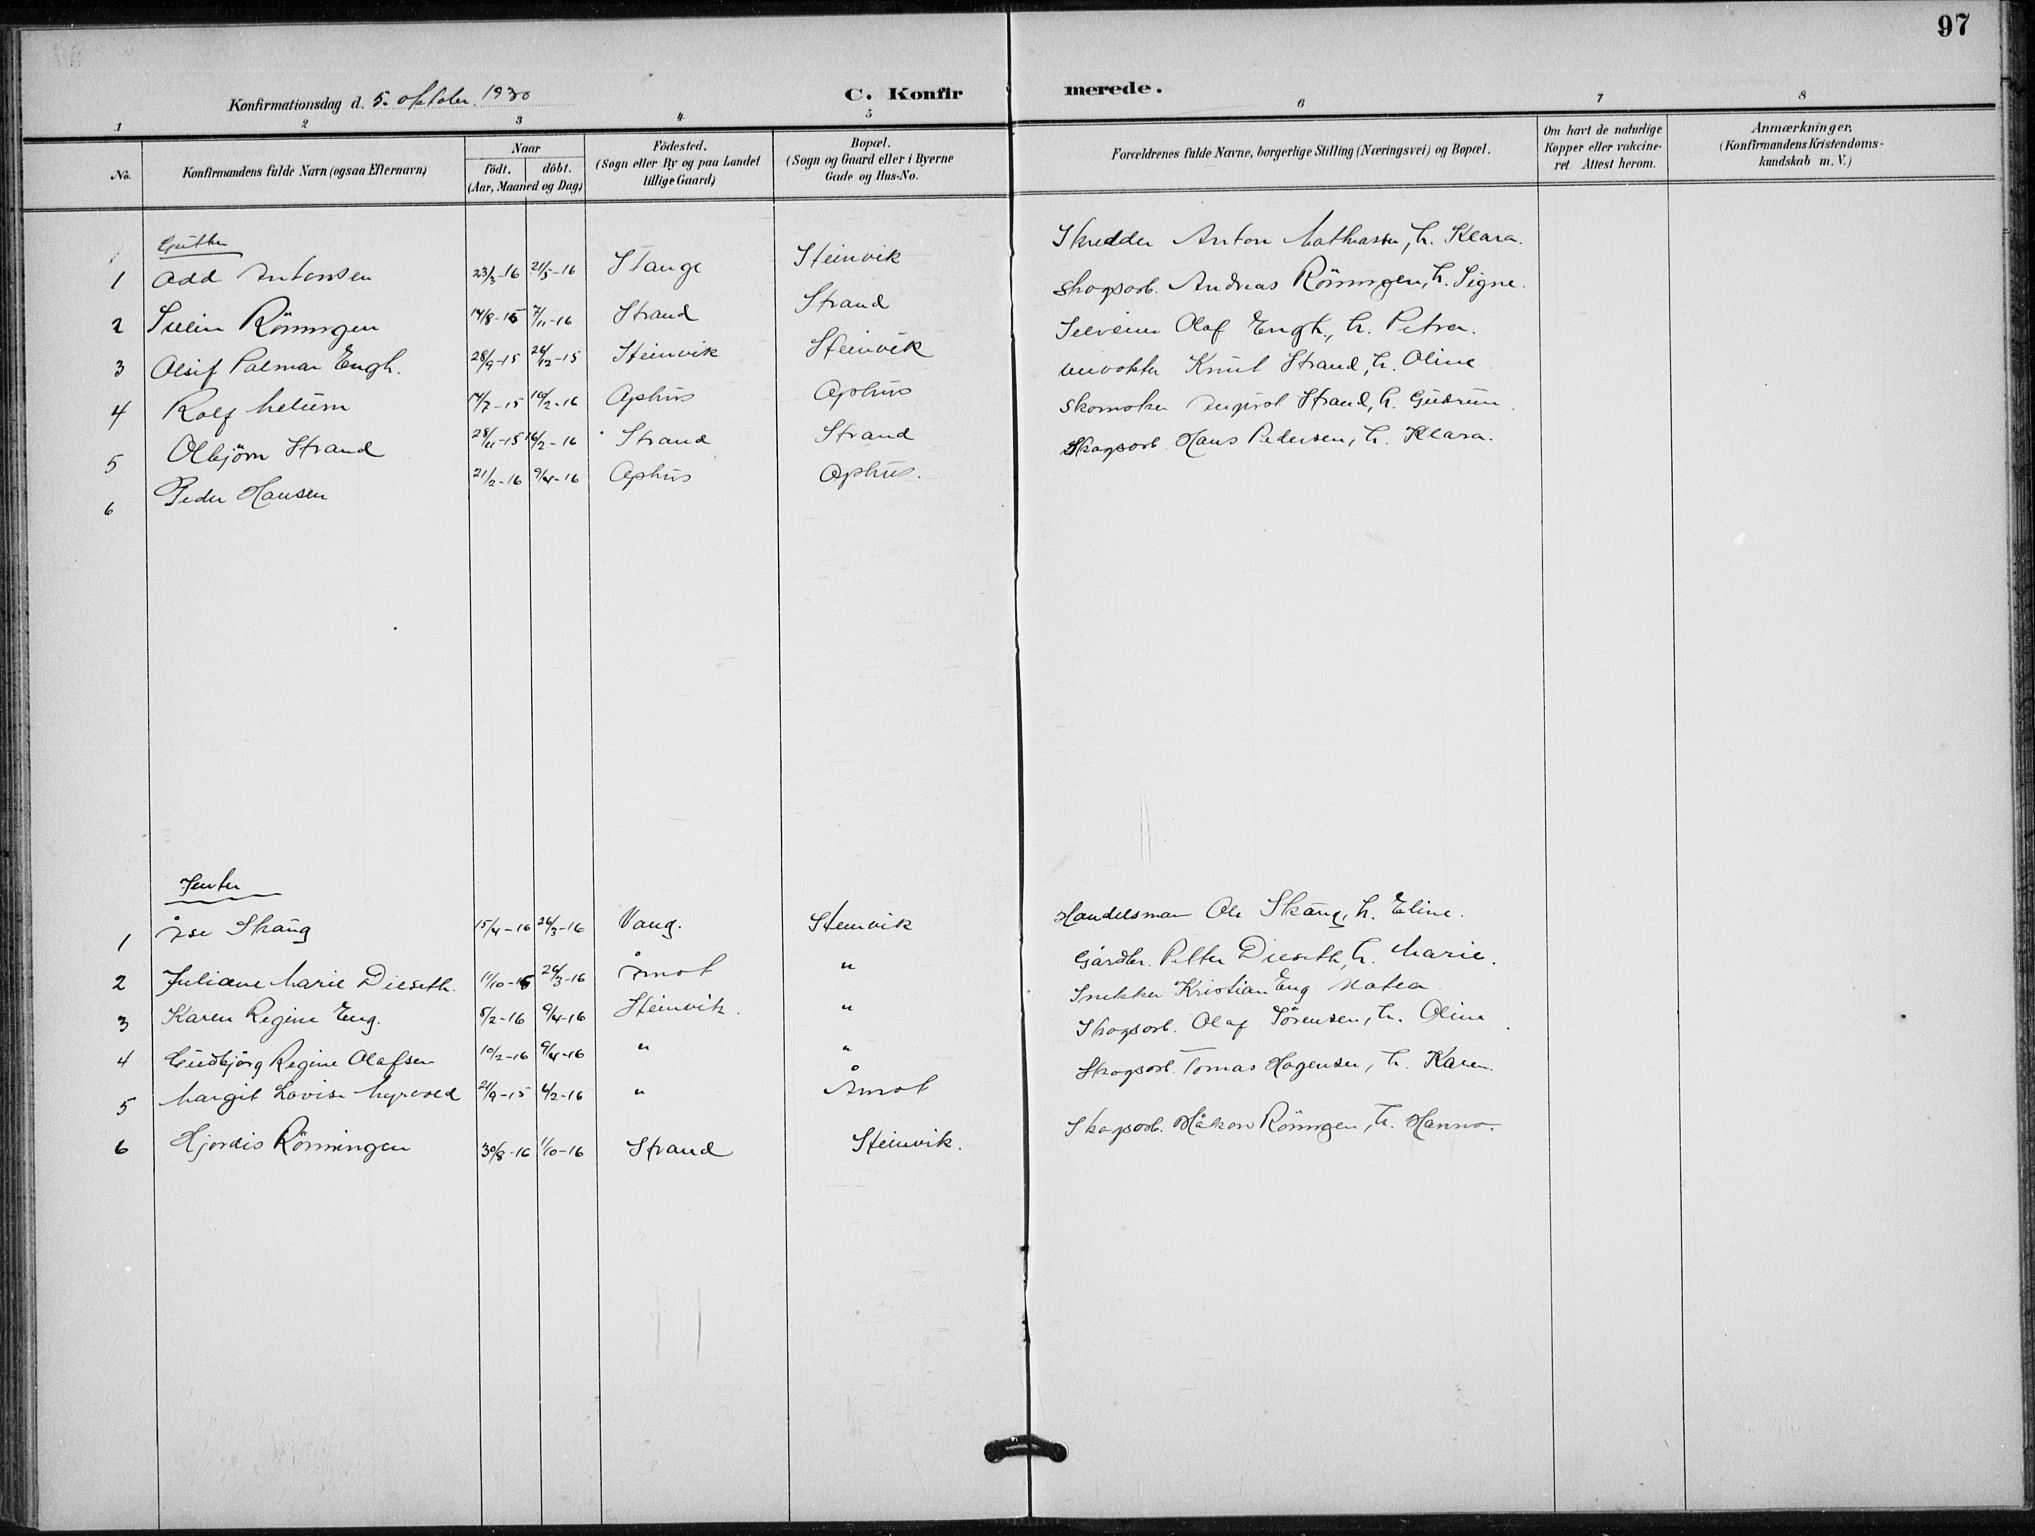 97
Konfirmationsdag d. 5. oktober 1930
C. Konfirmerede.
1 2 3 4 5 6 7 8
No. Konfirmandens fulde Navn (ogsaa Efternavn) Naar födt. döbt. (Aar, Maaned og Dag) Födested. (Sogn eller By og paa Landet tillige Gaard) Bopæl. (Sogn og Gaard eller i Byerne Gade og Hus-No. Forældrenes fulde Navne, borgerlige Stilling (Næringsvei) og Bopæl. Om havt de naturlige Kopper eller vakcineret. Attest herom. Anmærkninger, (Konfirmandens Kristendomskundskab m. V.)
Gutter
1 Odd Antonsen 23/3-16 21/5-16 Stange Steinvik Skredder Anton Mathiassen, h. Klara.
2 Rönningen 14/8-15 7/11-16 Strand Strand Skogsarb. Andreas Rönningen, h. Signe.
3 Palmar Engh. 28/9-15 26/12-15 Steinvik Steinvik Olaf Engh, h. Petra.
4 Rolf 14/7-15 16/2-16 Ophus Ophus Knut Strand, h. Oline
5 Olbjörn Strand 28/11-15 16/2-16 Strand Strand Skomaker Strand, h. Gudrun.
6 Peder Hansen 21/2-16 9/4-16 Ophus Ophus. Skogsarb. Hans Pedersen, h. Klara.
Jenter
1 Åse Skaug 15/4-16 26/3-16 Vang. Steinvik Handelsman Ole Skaug, h. Eline.
2 Juliane Marie Dieseth. 11/10-15 26/3-16 Åmot " Gårdbr. Petter Dieseth, h. Marie.
3 Karen Regine Eng. 5/2-16 9/4-16 Steinvik. " Snekker Kristian Eng Matea
4 Gudbjörg Regine Olafsen 10/2-16 9/4-16 " " Skogsarb. Olaf Sörensen, h. Oline.
5 Margit Lovise Myrvold 21/9-15 6/2-16 " Åmot Skogsarb. Tomas Hagensen, h. Karen.
6 Hjördis Rönningen 30/8-16 1/10-16 Strand Steinvik. Skogsarb. Håkon Rönningen, h. Hanna.